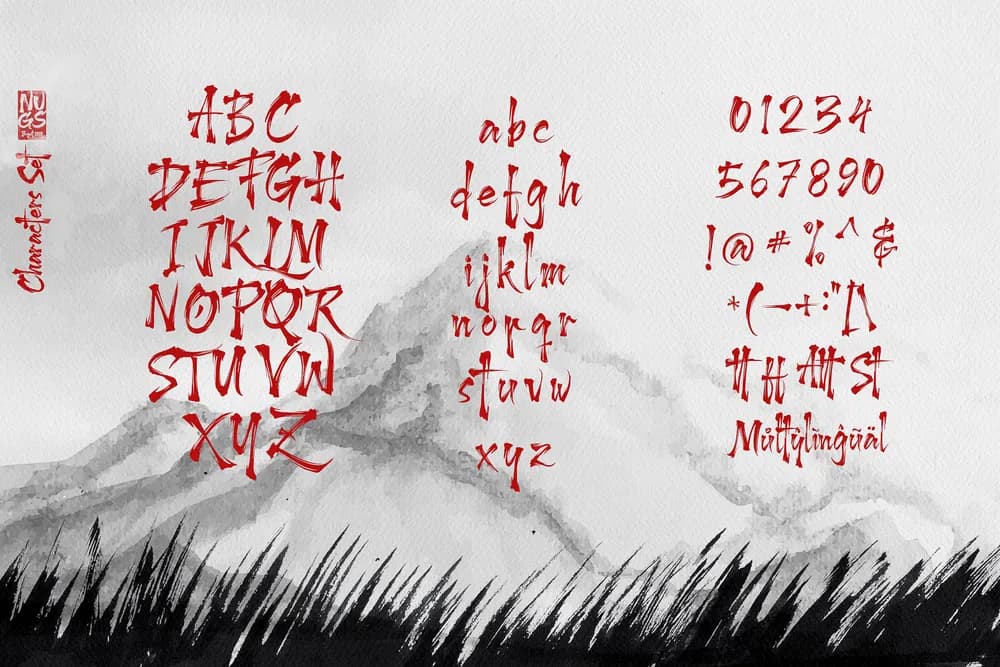 NUGS
Characters Set
ABC
DEFGH
IJKLM
NOPQR
STUVW
XYZ
abc
defgh
ijklm
nopqr
stuvw
xyz
01234
567890
!@#%^&
*(—+:"[]
tt ff Att St